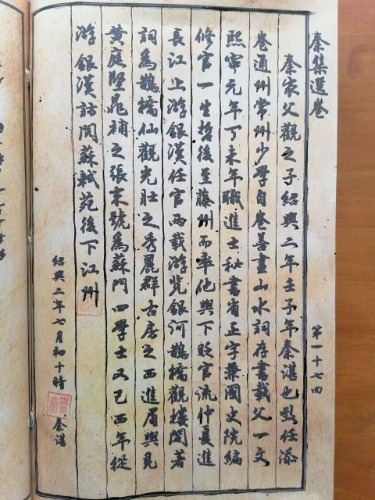 秦集選卷
第一十七回
秦家父觀之子紹興二年壬子年秦湛也致任添
卷通州常州少學自卷善畫山水詞存書載父一文
熙寧元年丁未年職進士秘書省正字兼國史院編
修官一生哲後至藤州而率他與下貶官流仲夏進
長江上游銀漢任官西載游覽銀河鵲橋觀樓閣著
詞為鵲橋仙觀光壯之秀麗群古居之西進眉與見
黃庭堅晁補之張耒號為蘇門四學士又己西年從
游銀漢訪閱蘇軾苑後下江州
紹興二年七月初十時 秦湛